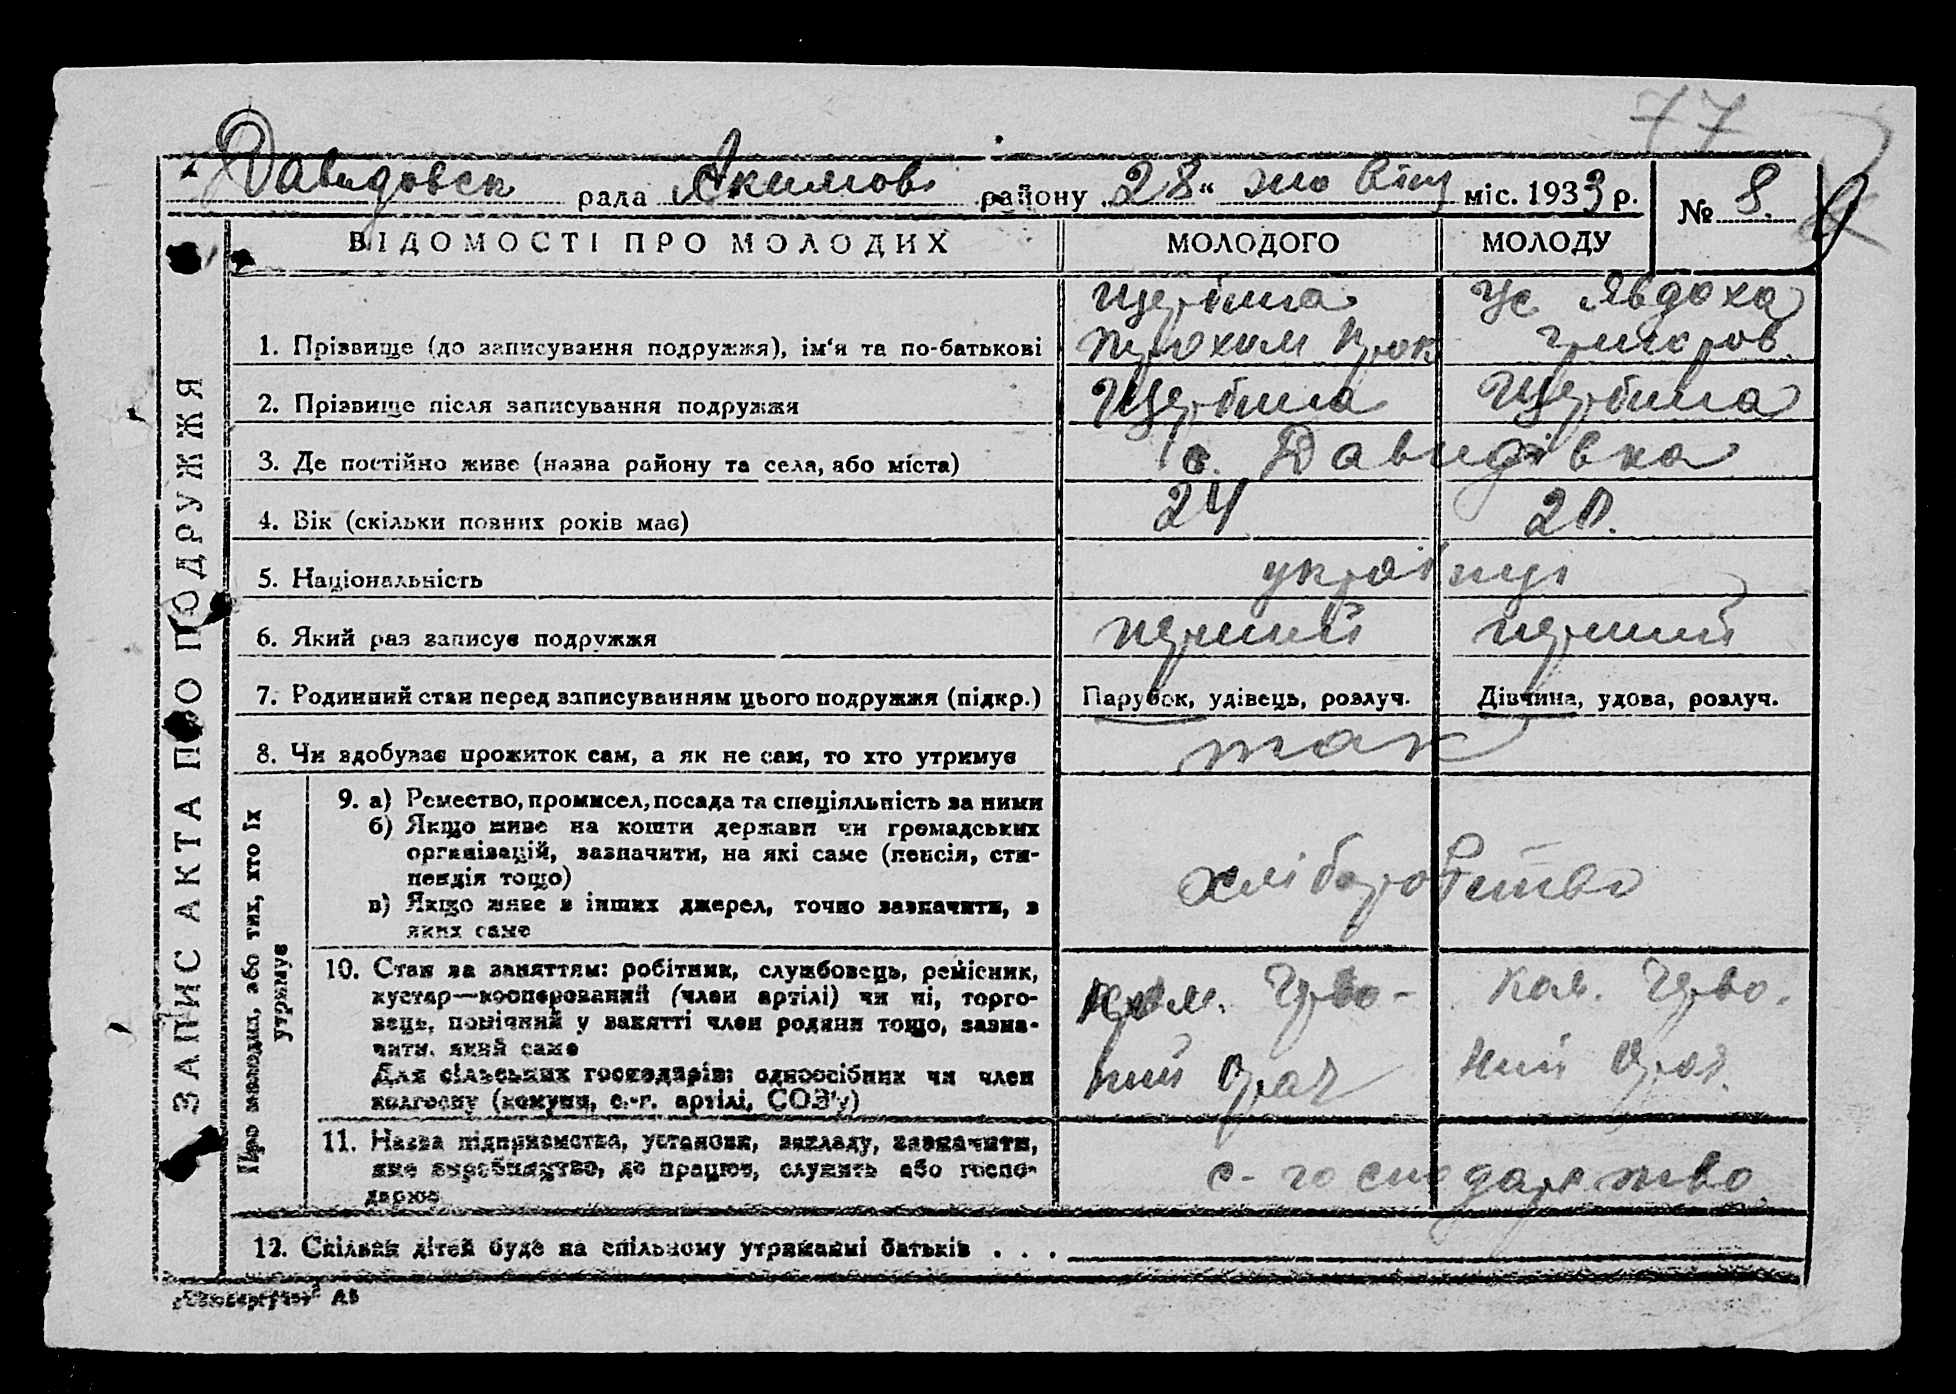 77
Давидовск рада Акимов району 28 " жовтня міс. 1933 р. № 8.
ВІДОМОСТІ ПРО МОЛОДИХ МОЛОДОГО МОЛОДУ
ЗАПИС АКТА ПРО ПОДРУЖЖЯ
Щербина Ус Явдоха
1. Прізвище (до записування подружжя), ім'я та по-батькові Прок
2. Прізвище після записування подружжя Щербина Щербина
3. Де постійно живе (назва району та села, або міста) с. Давидівка
4. Вік (скільки повних років має) 24 20.
5. Національність українці
6. Який раз записує подружжя перший перший
7. Родинний стан перед записуванням цього подружжя (підкр.) Парубок, удівець, розлуч. Дівчина, удова, розлуч.
8. Чи здобуває прожиток сам, а як не сам, то хто утримує так
Про молодих, або тих, хто їх
утримує
9. а) Ремество, промисел, посада та спеціяльність за ними
б) Якщо живе на кошти держави чи громадських
організацій, зазначити, на які саме (пенсія, сти-
пендія тощо)
в) Якщо живе з інших джерел, точно зазначити, з
яких саме
хліборобство
10. Стан за заняттям: робітник, службовець, ремісник,
кустар—кооперований (член артілі) чи ні, торго-
вець, помічний у занятті член родини тощо, зазна-
чити, який саме
Для сільських господарів: одноосібник чи член
колгоспу (комуни, с.-г. артілі, СОЗ'у)
Черво- кол. Черво-
ний Орач ний Орач.
11. Назва підприємства, установи, закладу, зазначити,
яке виробництво, де працює, служить або госпо-
дарює
с-господарство
12. Скільки дітей буде на спільному утриманні батьків . . .